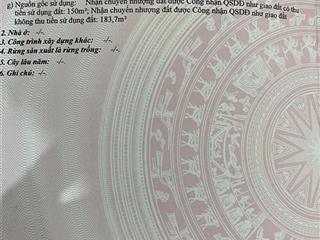 g) Nguồn gốc sử dụng: Nhận chuyển nhượng đất được Công nhận QSDĐ như giao đất có thu
tiền sử dụng đất: 150m²; Nhận chuyển nhượng đất được Công nhận QSDĐ như giao đất
không thu tiền sử dụng đất: 183,7m²
2. Nhà ở: -/-.
3. Công trình xây dựng khác: -/-.
4. Rừng sản xuất là rừng trồng: -/-.
5. Cây lâu năm: -/-.
6. Ghi chú: -/-.